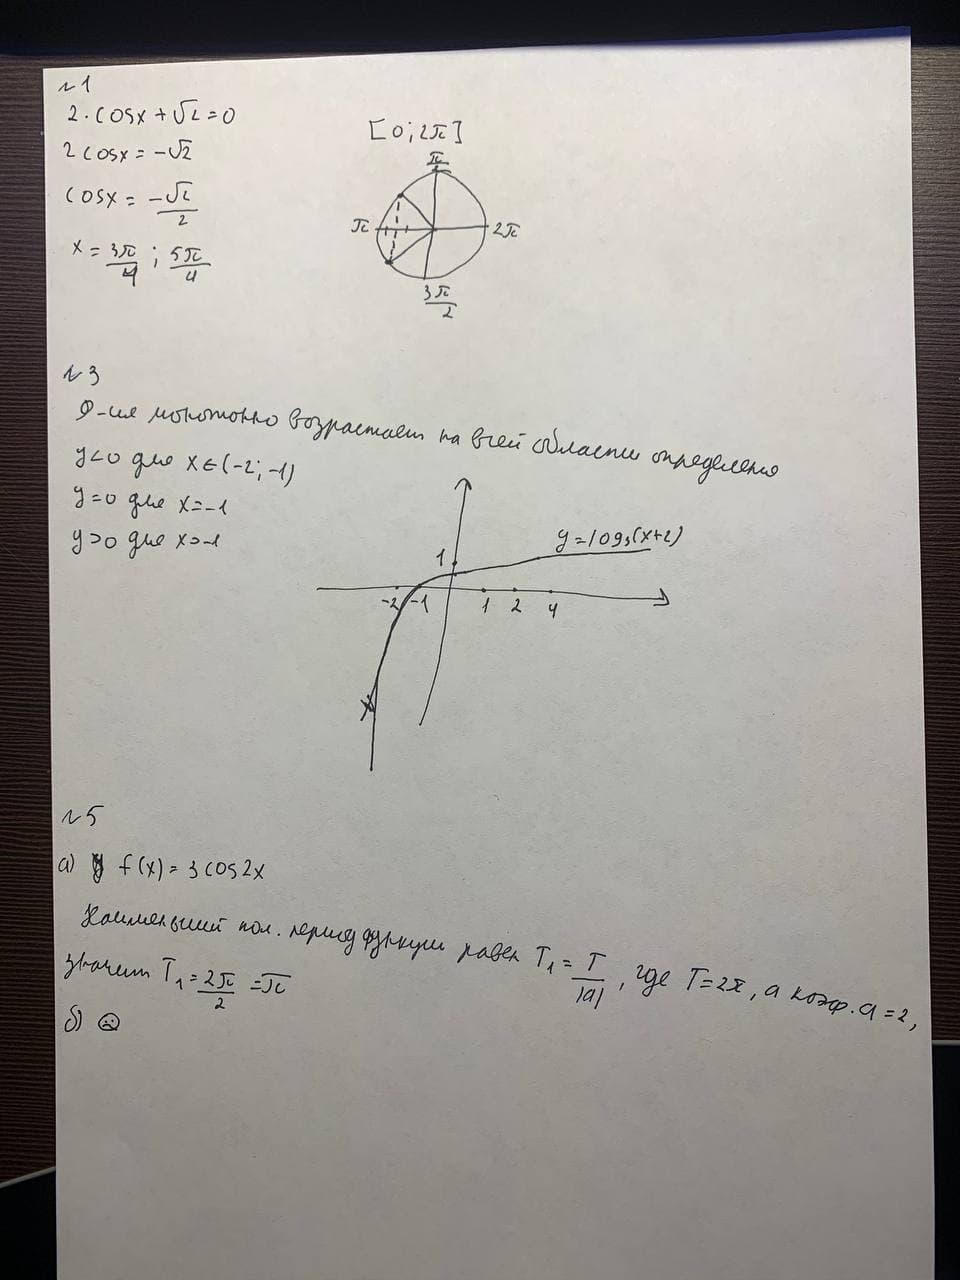 №1
2·cosx+√2=0
2cosx=-√2
cosx=-√2/2
x=3π/4; 5π/4
[0;2π]
π/2
π
2π
3π/2
№3
Ф-ия монотонно возрастает на всей области определения
y<0 для x∈(-2;-1)
y=0 для x=-1
y>0 для x>-1
y=log₃(x+2)
1
-2 -1 1 2 4
№5
а) f(x)=3cos2x
Наименьший пол. период функции равен T₁=T/|a|, где T=2π, а коэф. a=2,
значит T₁=2π/2=π
б) ☹